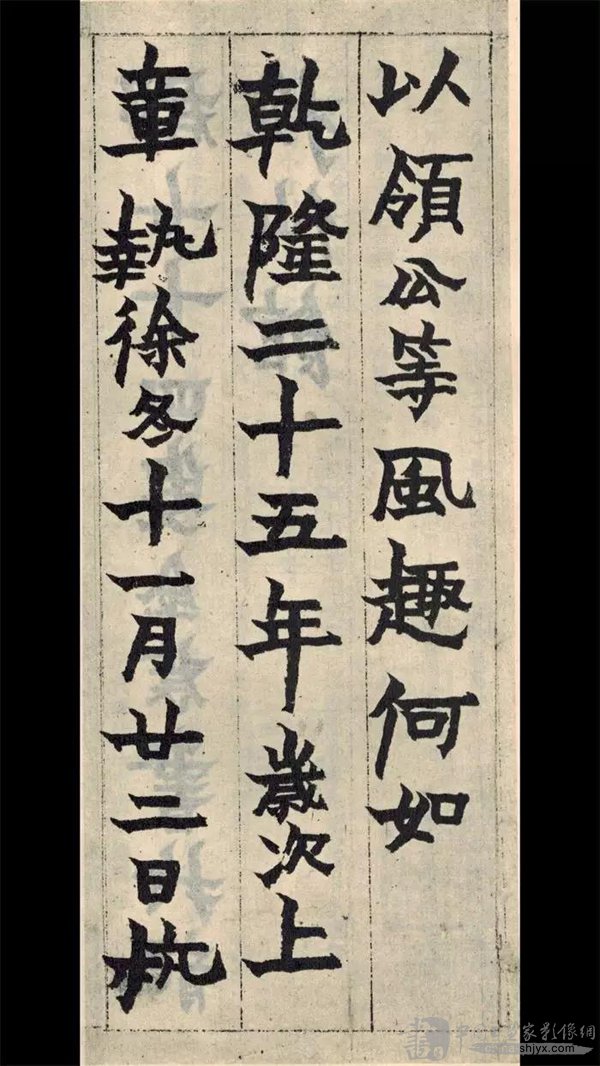 以領公等風趣何如
乾隆二十五年歲次上
章執徐冬十一月廿二日杭
家影像網
shjyx.com